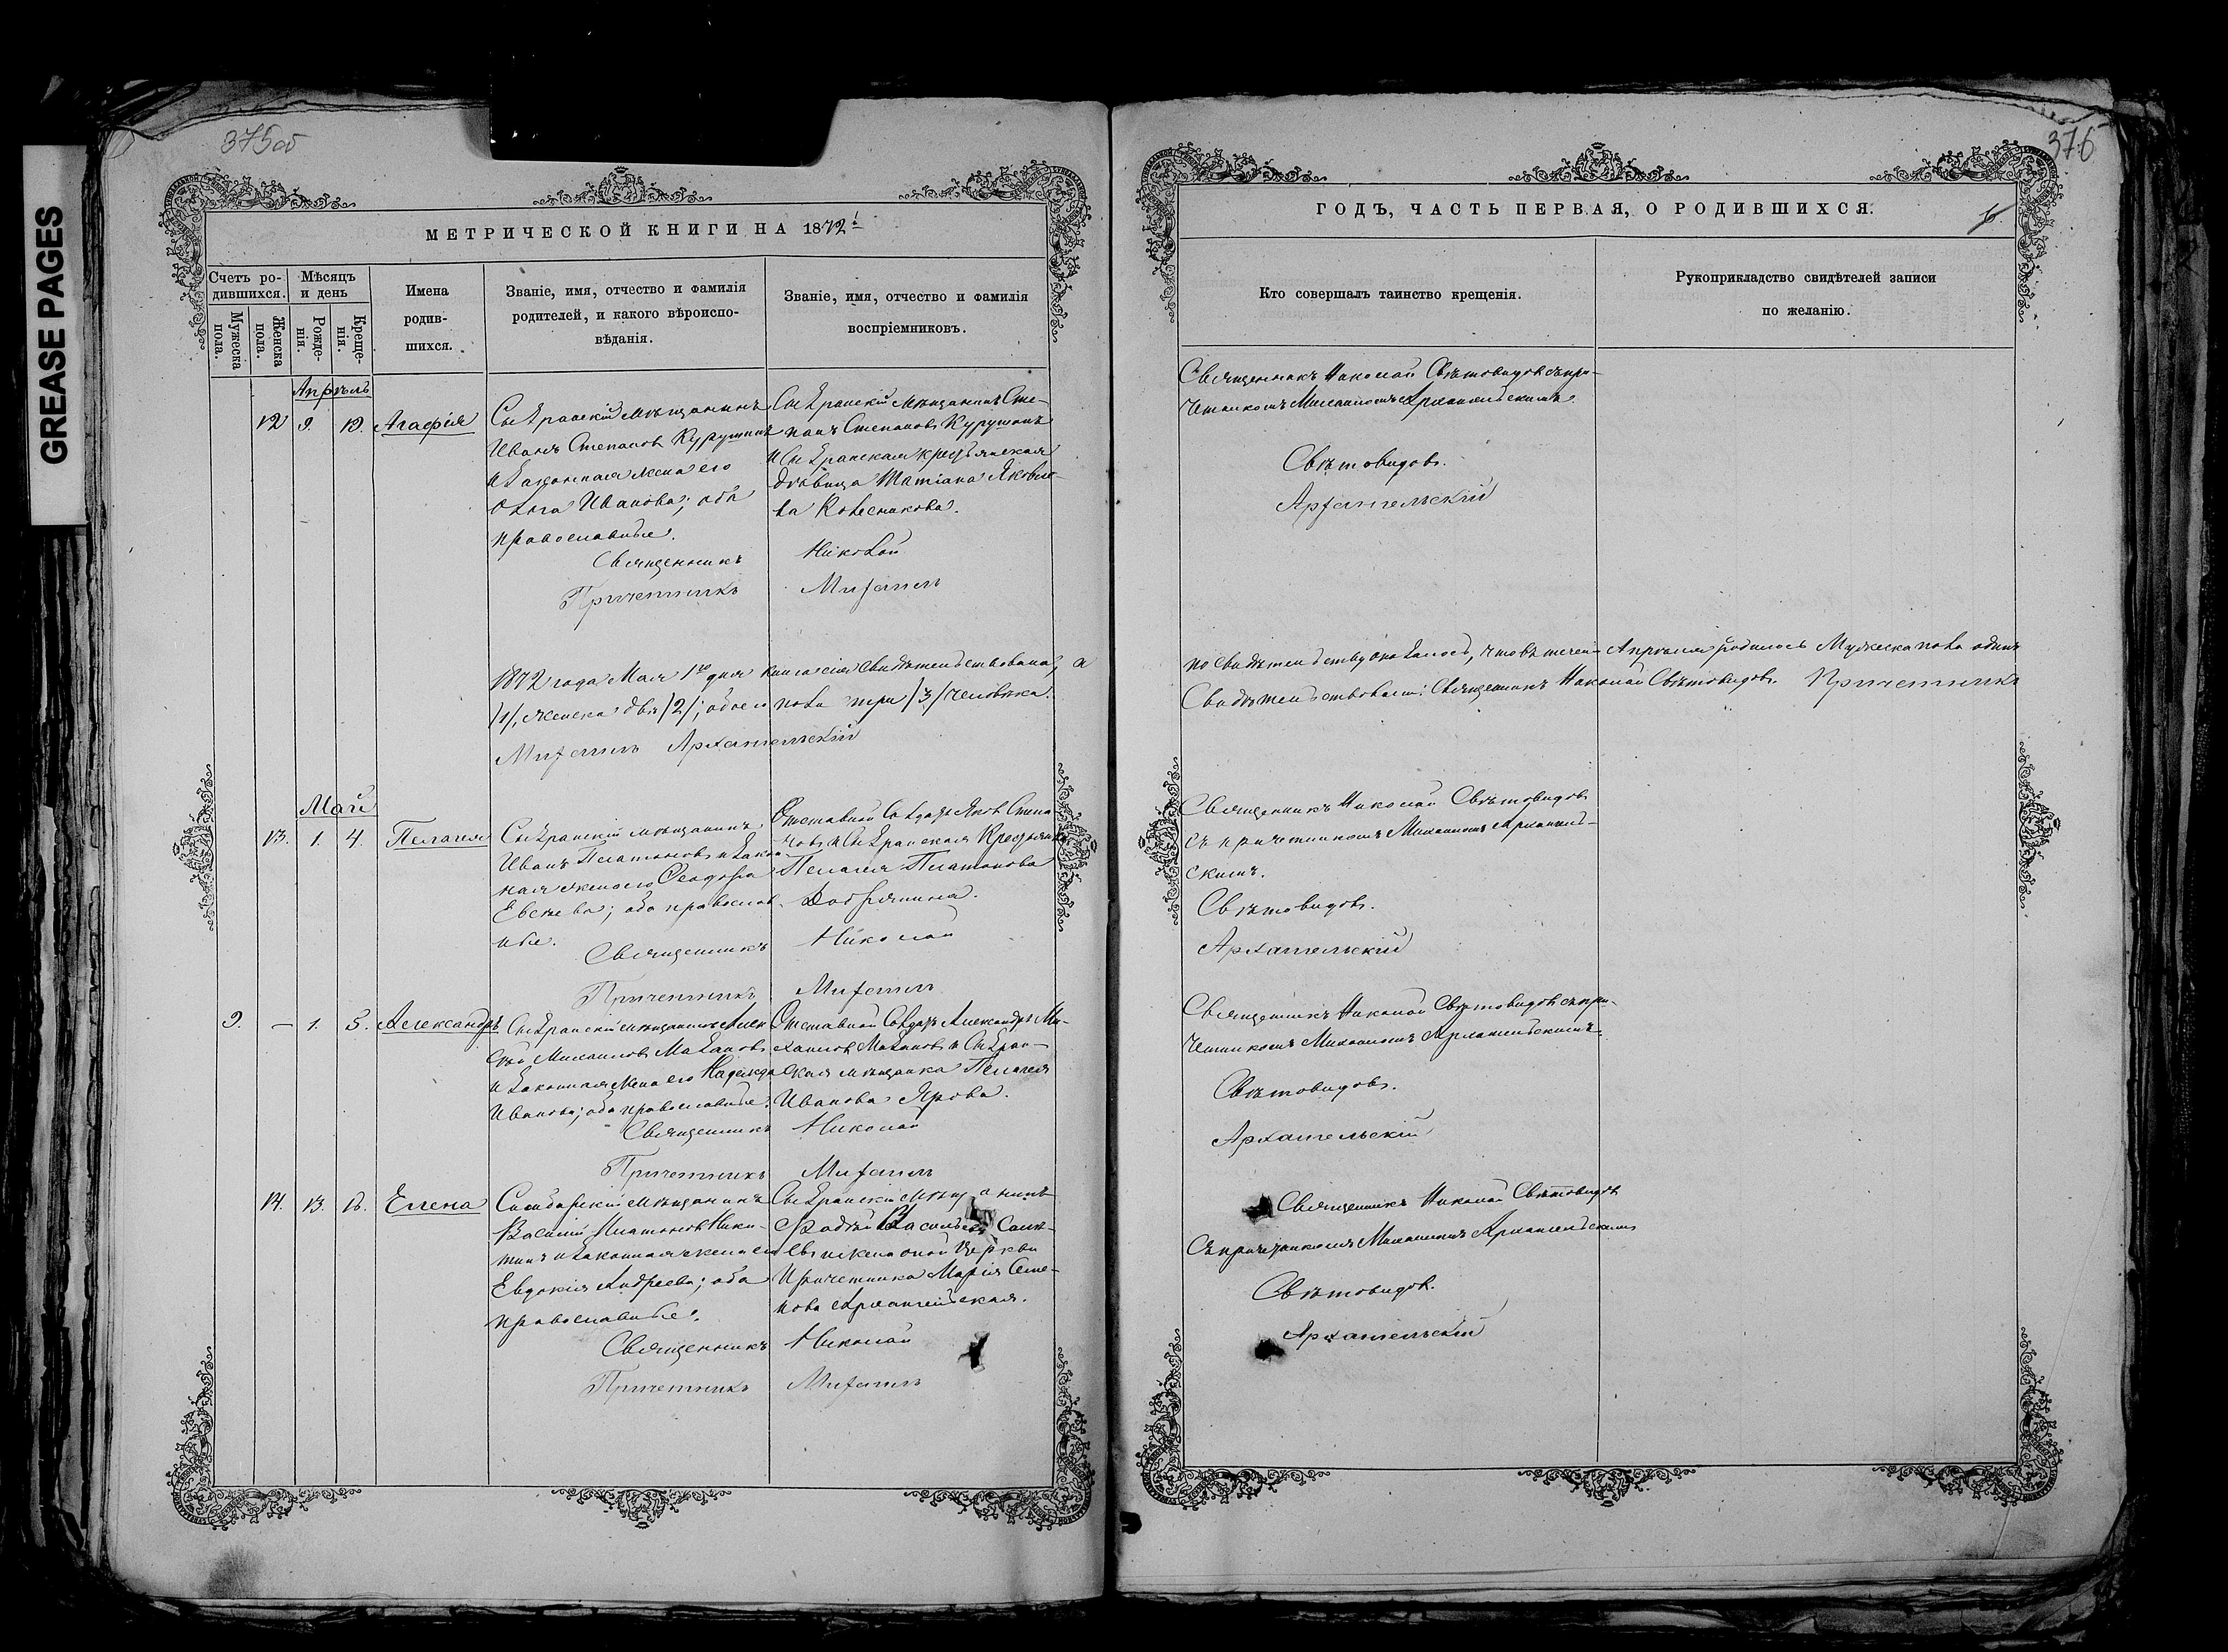 GREASE PAGES
375об
МЕТРИЧЕСКОЙ КНИГИ НА 1872й
Счетъ ро-
дившихся.
Мѣсяцъ
и день
Мужеска
пола.
Женска
пола.
Рожде-
нія.
Креще-
нія.
Имена
родив-
шихся.
Званіе, имя, отчество и фамилія
родителей, и какого вѣроиспо-
вѣданія.
Званіе, имя, отчество и фамилія
воспріемниковъ.
Апрѣль
12 9. 12. Агафія
Сызранскій мѣщанинъ
Иванъ Степановъ Курушинъ
и законная жена его
Ольга Иванова; оба
православные.
Сызранскій мѣщанинъ Сте-
панъ Степановъ Курушинъ
и Сызранская крестьянская
дѣвица Татіана Яковле-
ва Колесникова.
Священникъ Николай
Причетникъ Михаилъ
1872 года Мая 1го дня книга сія свидѣтельствована, а
/1/, женска два /2/; обоего пола три /3/ человѣка.
Михаилъ Архангельскій
Май
13. 1. 4. Пелагія
Сызранскій мѣщанинъ
Иванъ Платоновъ и закон-
ная жена его Ѳеодора
Евсеева; оба православ-
ные.
Отставной солдатъ Яковъ Степа-
новъ и Сызранская крестьянка
Пелагея Платонова
Добрынина.
Священникъ Николай
Причетникъ Михаилъ
9. — 1. 5. Александръ
Сызранскій мѣщанинъ Алек-
сѣй Михаиловъ Мазановъ
и законная жена его Надежда
Иванова; оба православные.
Отставной солдатъ Александръ Ми-
хаиловъ Мазановъ и Сызран-
ская мѣщанка Пелагея
Иванова Ярова.
Священникъ Николай
Причетникъ Михаилъ
14. 13. 16. Елена
Симбирскій мѣщанинъ
Василій Платоновъ Ники-
тинъ и законная жена его
Евдокія Андреева; оба
православные.
Сызранскій мѣщанинъ
Васильевъ
и жена оной церкви
причетника Марія Семе-
нова Архангельская.
Священникъ Николай
Причетникъ Михаилъ
376
ГОДЪ, ЧАСТЬ ПЕРВАЯ, О РОДИВШИХСЯ.
Кто совершалъ таинство крещенія.
Рукоприкладство свидѣтелей записи
по желанію.
Священникъ Николай Свѣтовидовъ съ при-
четникомъ Михаиломъ Архангельскимъ.
Свѣтовидовъ.
Архангельскій
по свидѣтельству оказалось, что въ течен. Апрѣля родилось Мужеска пола одинъ
Свидѣтельствовали: Священникъ Николай Свѣтовидовъ. Причетникъ
Священникъ Николай Свѣтовидовъ
съ причетникомъ Михаиломъ Архангель-
скимъ.
Свѣтовидовъ.
Архангельскій
Священникъ Николай Свѣтовидовъ съ при-
четникомъ Михаиломъ Архангельскимъ.
Свѣтовидовъ.
Архангельскій
Священникъ Николай Свѣтовидовъ
съ причетникомъ Михаиломъ Архангельскимъ
Свѣтовидовъ.
Архангельскій